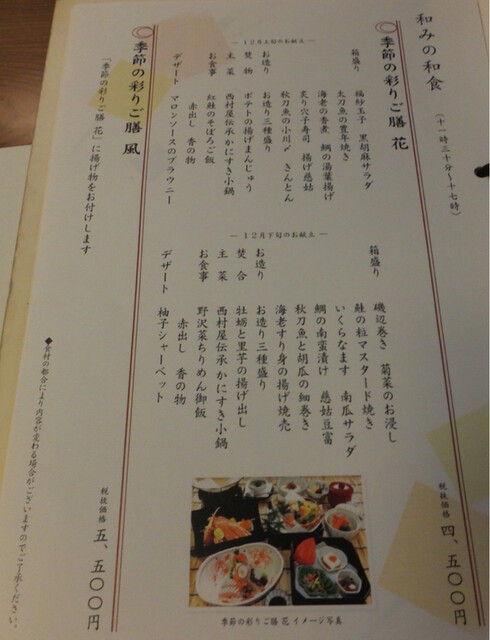 和みの和食
(十一時三十分~十七時)
季節の彩りご膳 花
税抜価格 四、五〇〇円
― 12月上旬のお献立 ―
箱盛り 福紗玉子 黒胡麻サラダ
太刀魚の豊年焼き
海老の香煮 鯛の湯葉揚げ
炙り穴子寿司 揚げ慈姑
秋刀魚の小川〆 きんとん
お造り お造り三種盛り
焚物 ポテトの揚げまんじゅう
主菜 西村屋伝承かにすき小鍋
お食事 紅鮭のそぼろご飯
赤出し 香の物
デザート マロンソースのブラウニー
― 12月下旬のお献立 ―
箱盛り 磯辺巻き 菊菜のお浸し
鮭の粒マスタード焼き
いくらなます 南瓜サラダ
鯛の南蛮漬け 慈姑豆富
秋刀魚と胡瓜の細巻き
海老すり身の揚げ焼売
お造り お造り三種盛り
焚合 牡蛎と里芋の揚げ出し
主菜 西村屋伝承かにすき小鍋
お食事 野沢菜ちりめん御飯
赤出し 香の物
デザート 柚子シャーベット
季節の彩りご膳 花 イメージ写真
季節の彩りご膳 風
税抜価格 五、五〇〇円
「季節の彩りご膳 花」に揚げ物をお付けします
◆食材の都合により内容が変わる場合がございますのでご了承ください。